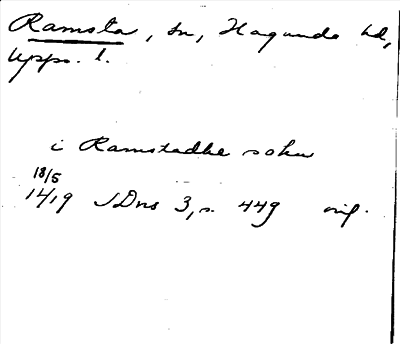 Ramsta, sn, Hagunda hd,
Upps. l.
i Ramstadhe sokn
18/5
1419 SDns 3, s. 449 orig.